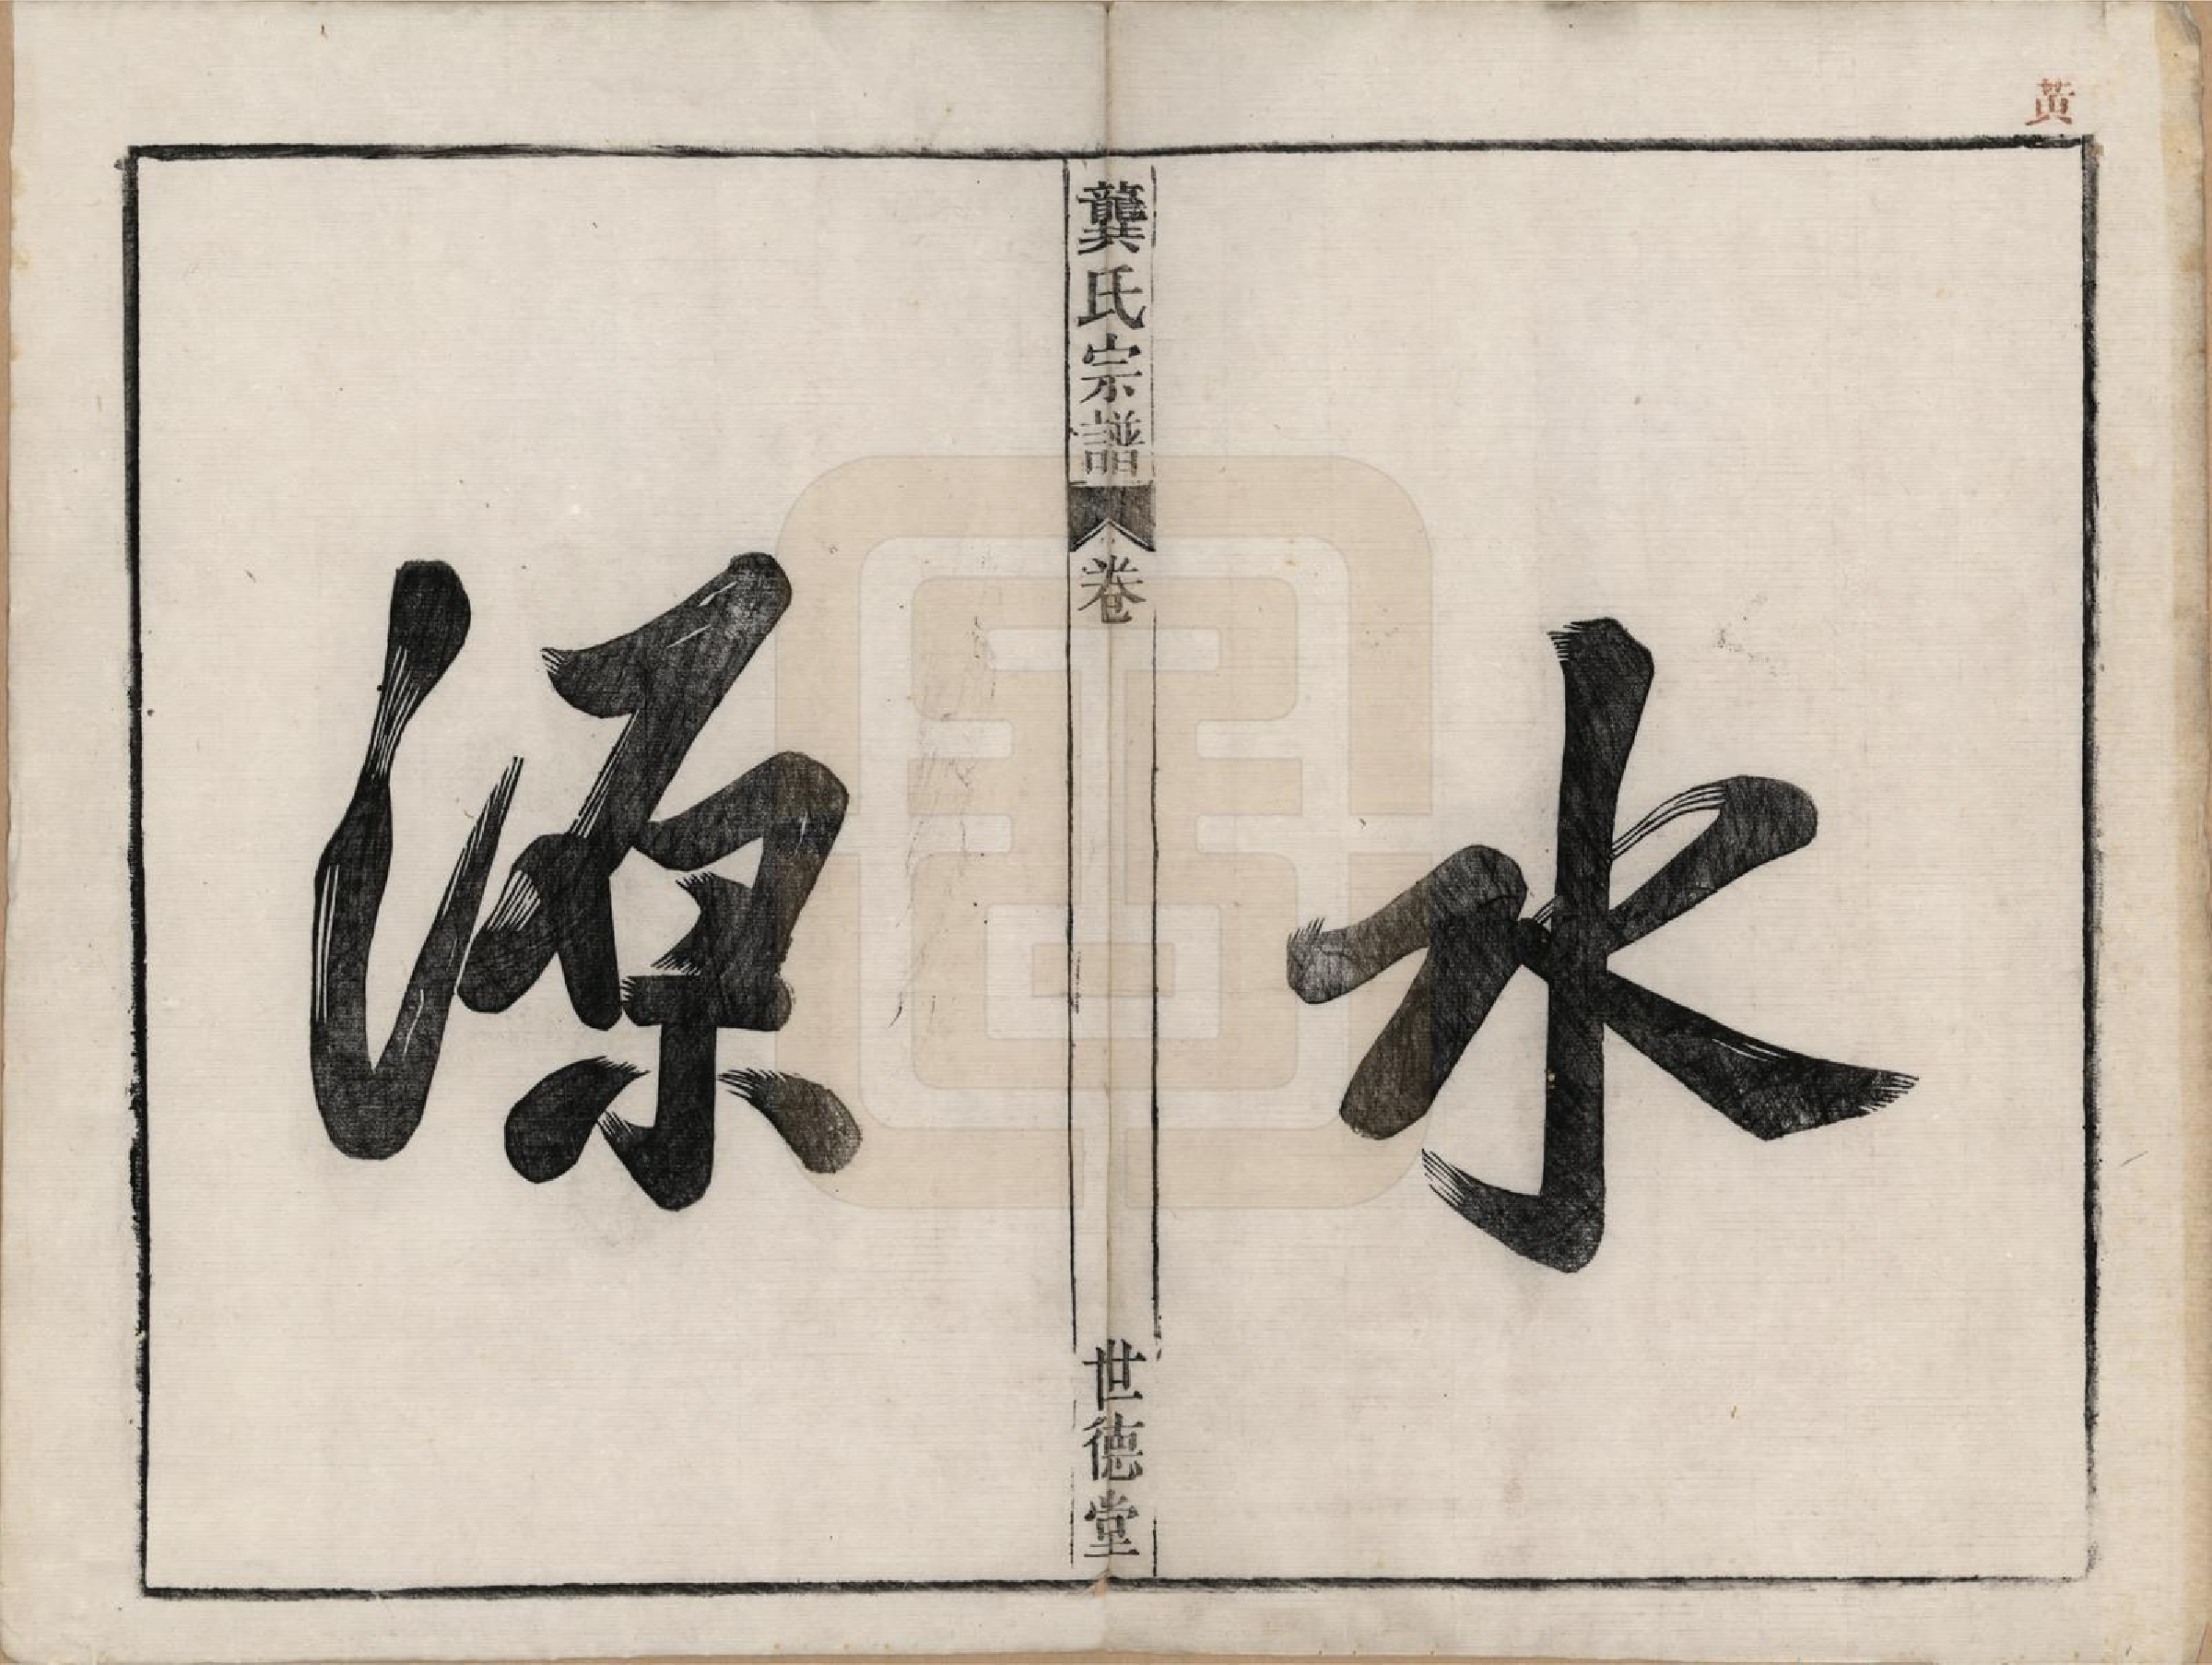 黃
水
龔氏宗譜
卷
世德堂
源